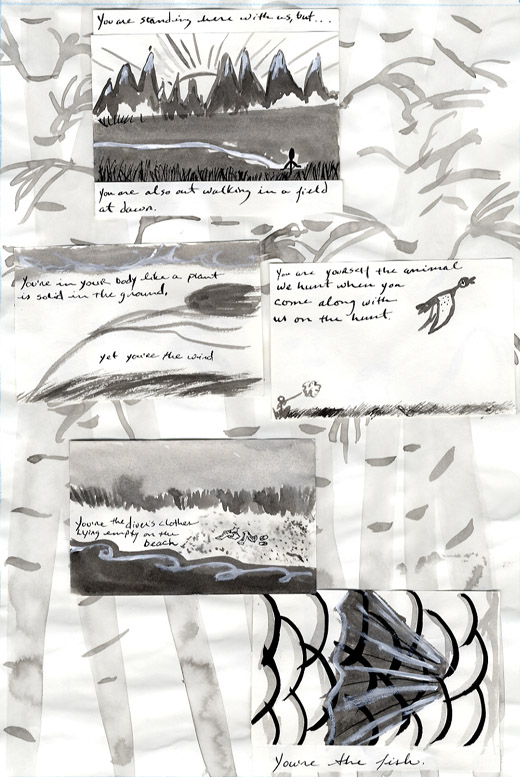 You are standing here with us, but...
You are also out walking in a field
at dawn.
You're in your body like a plant
is solid in the ground,
yet you're the wind
You are yourself the animal
we hunt when you
come along with
us on the hunt
You're the diver's clothes
lying empty on the
beach
You're the fish.